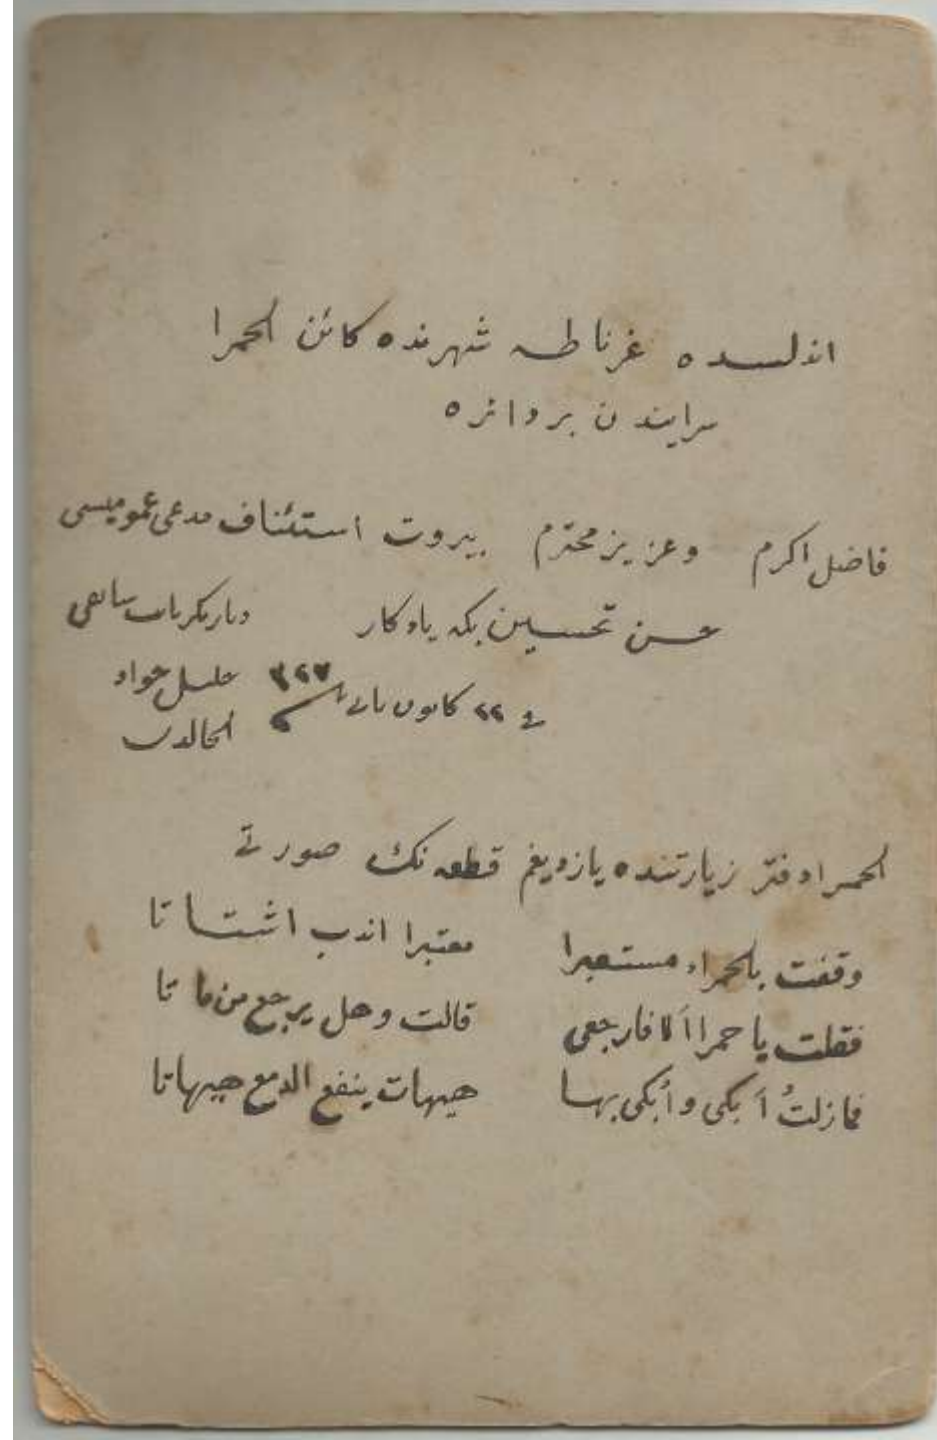 اندلسده غرناطه شهرنده كائن الحمرا
سرايندن بر دائره
فاضل اكرم وعزيز محترم بيروت استئناف مدعى عموميسى
حسن تحسين بكه يادكار
فى ٢٢ كانون ثانى ٣٢٧
خليل جواد
الخالدى
الحمراء دفتر زيارتنده يازديغم قطعه نك صورتى
وقفت بالحمراء مستعبرا معتبرا اندب اشتاتا
فقلت يا حمرا ألا فارجعى قالت وهل يرجع من ماتا
فما زلتُ أبكى وأبكى بها هيهات ينفع الدمع هيهاتا